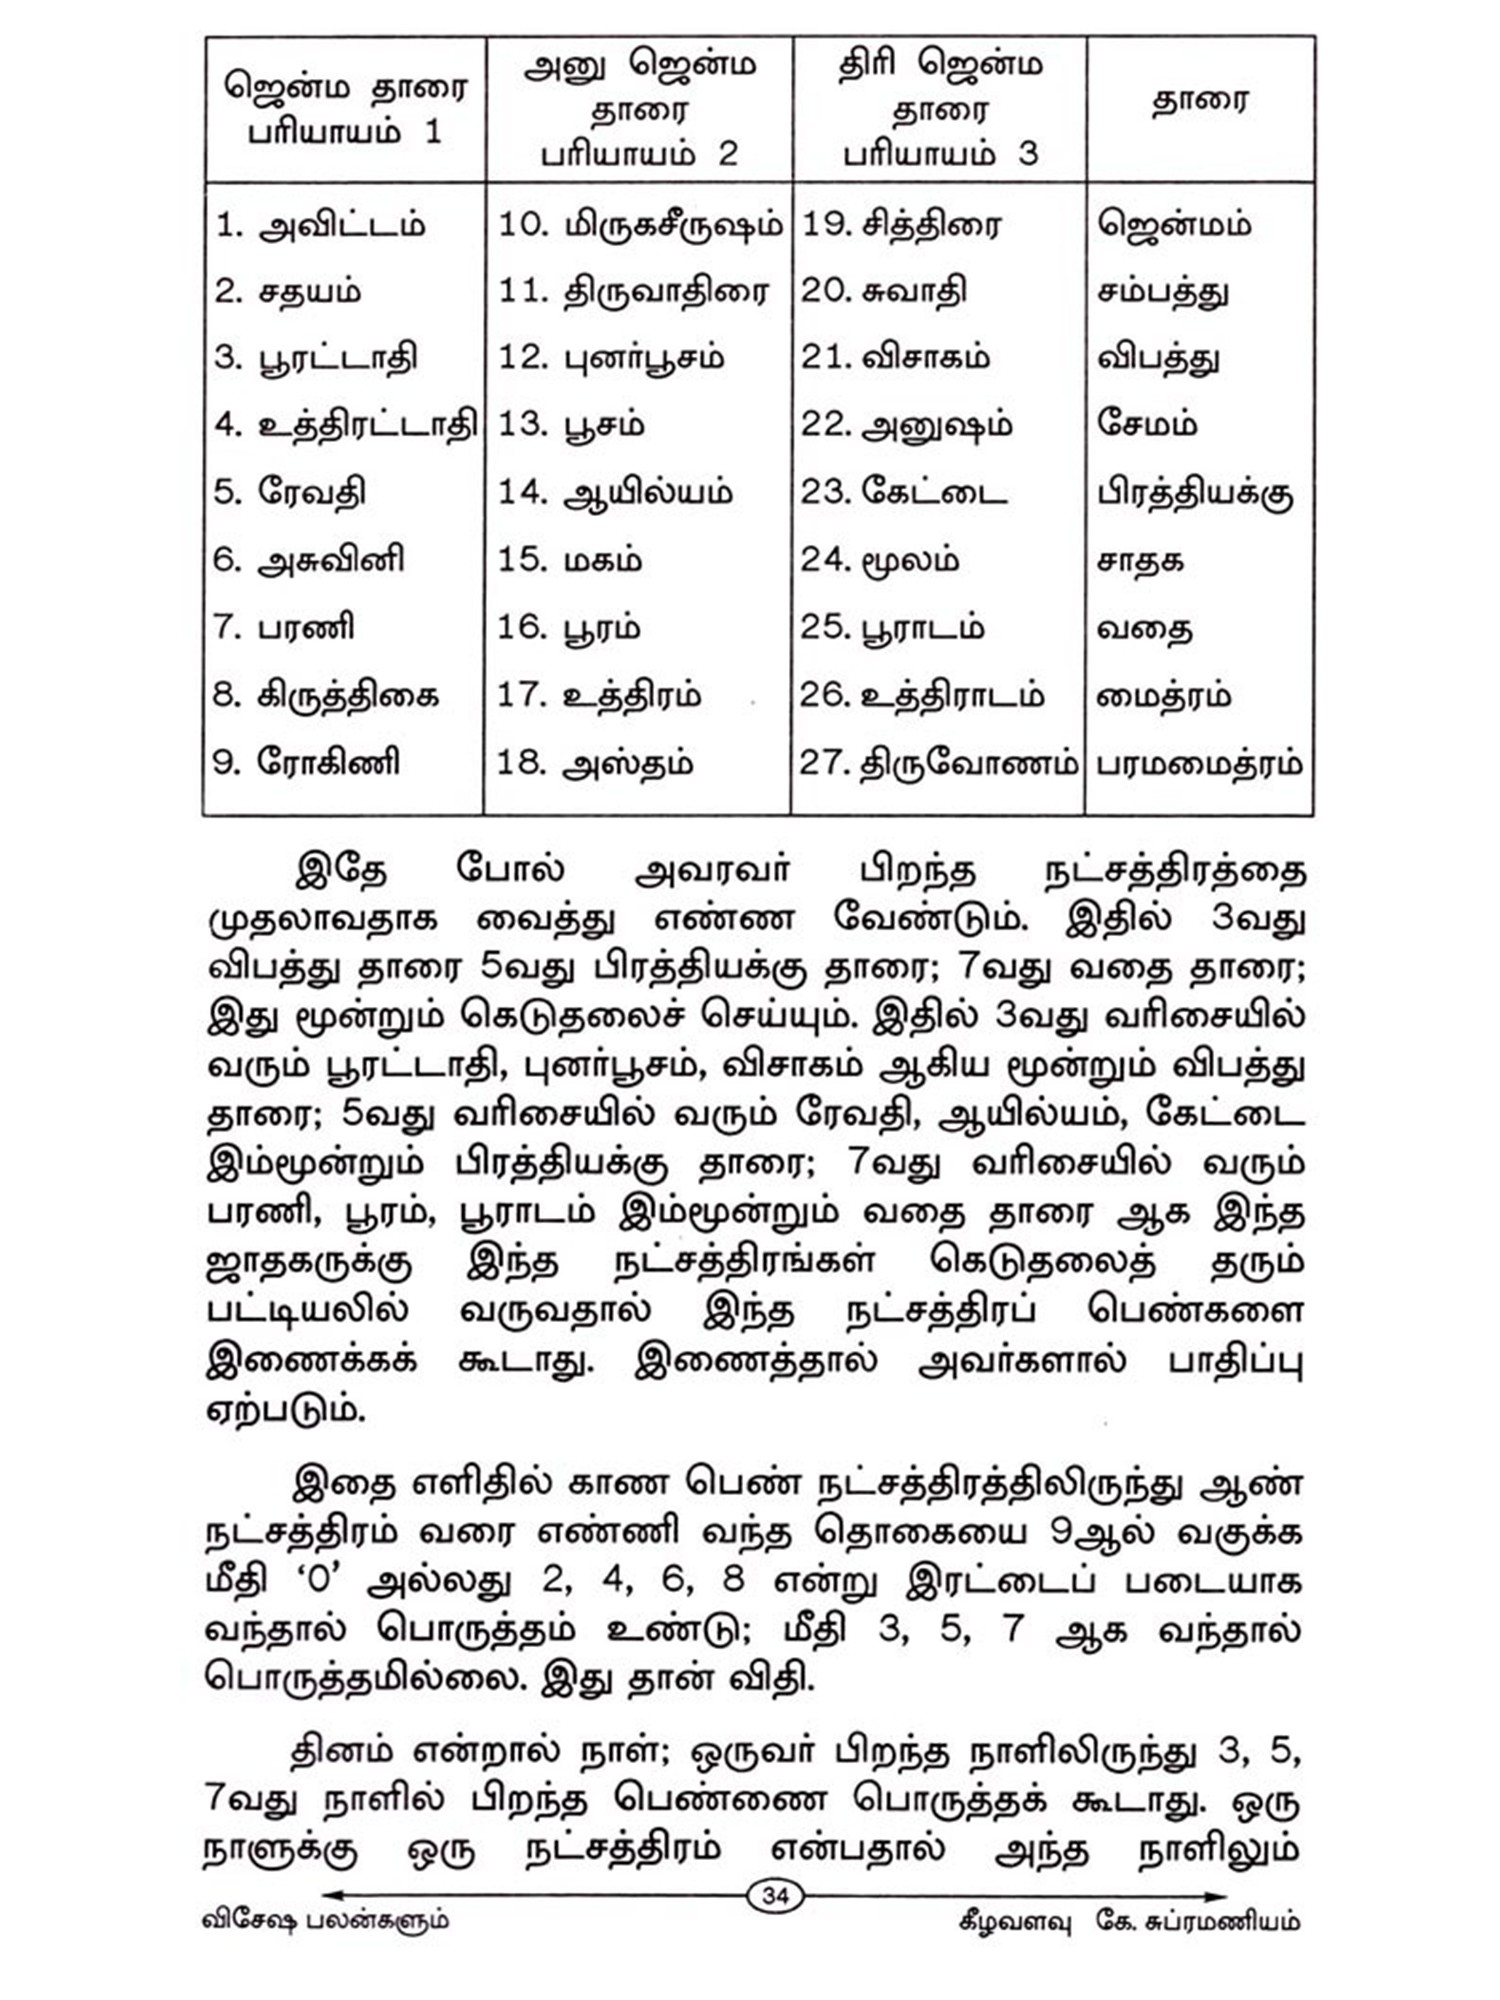 ஜென்ம தாரை
பரியாயம் 1
அனு ஜென்ம
தாரை
பரியாயம் 2
திரி ஜென்ம
தாரை
பரியாயம் 3
தாரை
1. அவிட்டம் 10. மிருகசீருஷம் 19. சித்திரை ஜென்மம்
2. சதயம் 11. திருவாதிரை 20. சுவாதி சம்பத்து
3. பூரட்டாதி 12. புனர்பூசம் 21. விசாகம் விபத்து
4. உத்திரட்டாதி 13. பூசம் 22. அனுஷம் சேமம்
5. ரேவதி 14. ஆயில்யம் 23. கேட்டை பிரத்தியக்கு
6. அசுவினி 15. மகம் 24. மூலம் சாதக
7. பரணி 16. பூரம் 25. பூராடம் வதை
8. கிருத்திகை 17. உத்திரம் 26. உத்திராடம் மைத்ரம்
9. ரோகிணி 18. அஸ்தம் 27. திருவோணம் பரமமைத்ரம்
இதே போல் அவரவர் பிறந்த நட்சத்திரத்தை
முதலாவதாக வைத்து எண்ண வேண்டும். இதில் 3வது
விபத்து தாரை 5வது பிரத்தியக்கு தாரை; 7வது வதை தாரை;
இது மூன்றும் கெடுதலைச் செய்யும். இதில் 3வது வரிசையில்
வரும் பூரட்டாதி, புனர்பூசம், விசாகம் ஆகிய மூன்றும் விபத்து
தாரை; 5வது வரிசையில் வரும் ரேவதி, ஆயில்யம், கேட்டை
இம்மூன்றும் பிரத்தியக்கு தாரை; 7வது வரிசையில் வரும்
பரணி, பூரம், பூராடம் இம்மூன்றும் வதை தாரை ஆக இந்த
ஜாதகருக்கு இந்த நட்சத்திரங்கள் கெடுதலைத் தரும்
பட்டியலில் வருவதால் இந்த நட்சத்திரப் பெண்களை
இணைக்கக் கூடாது. இணைத்தால் அவர்களால் பாதிப்பு
ஏற்படும்.
இதை எளிதில் காண பெண் நட்சத்திரத்திலிருந்து ஆண்
நட்சத்திரம் வரை எண்ணி வந்த தொகையை 9ஆல் வகுக்க
மீதி ‘0’ அல்லது 2, 4, 6, 8 என்று இரட்டைப் படையாக
வந்தால் பொருத்தம் உண்டு; மீதி 3, 5, 7 ஆக வந்தால்
பொருத்தமில்லை. இது தான் விதி.
தினம் என்றால் நாள்; ஒருவர் பிறந்த நாளிலிருந்து 3, 5,
7வது நாளில் பிறந்த பெண்ணை பொருத்தக் கூடாது. ஒரு
நாளுக்கு ஒரு நட்சத்திரம் என்பதால் அந்த நாளிலும்
34
விசேஷ பலன்களும் கீழவளவு கே. சுப்ரமணியம்